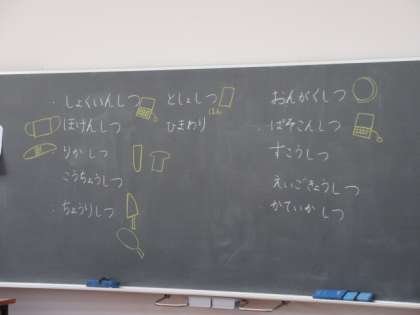 ・しょくいんしつ
ほけんしつ
・りかしつ
こうちょうしつ
・ちょうりしつ
としょしつ
ほん
ひまわり
おんがくしつ
・ぱそこんしつ
すこうしつ
えいごきょうしつ
・かていかしつ